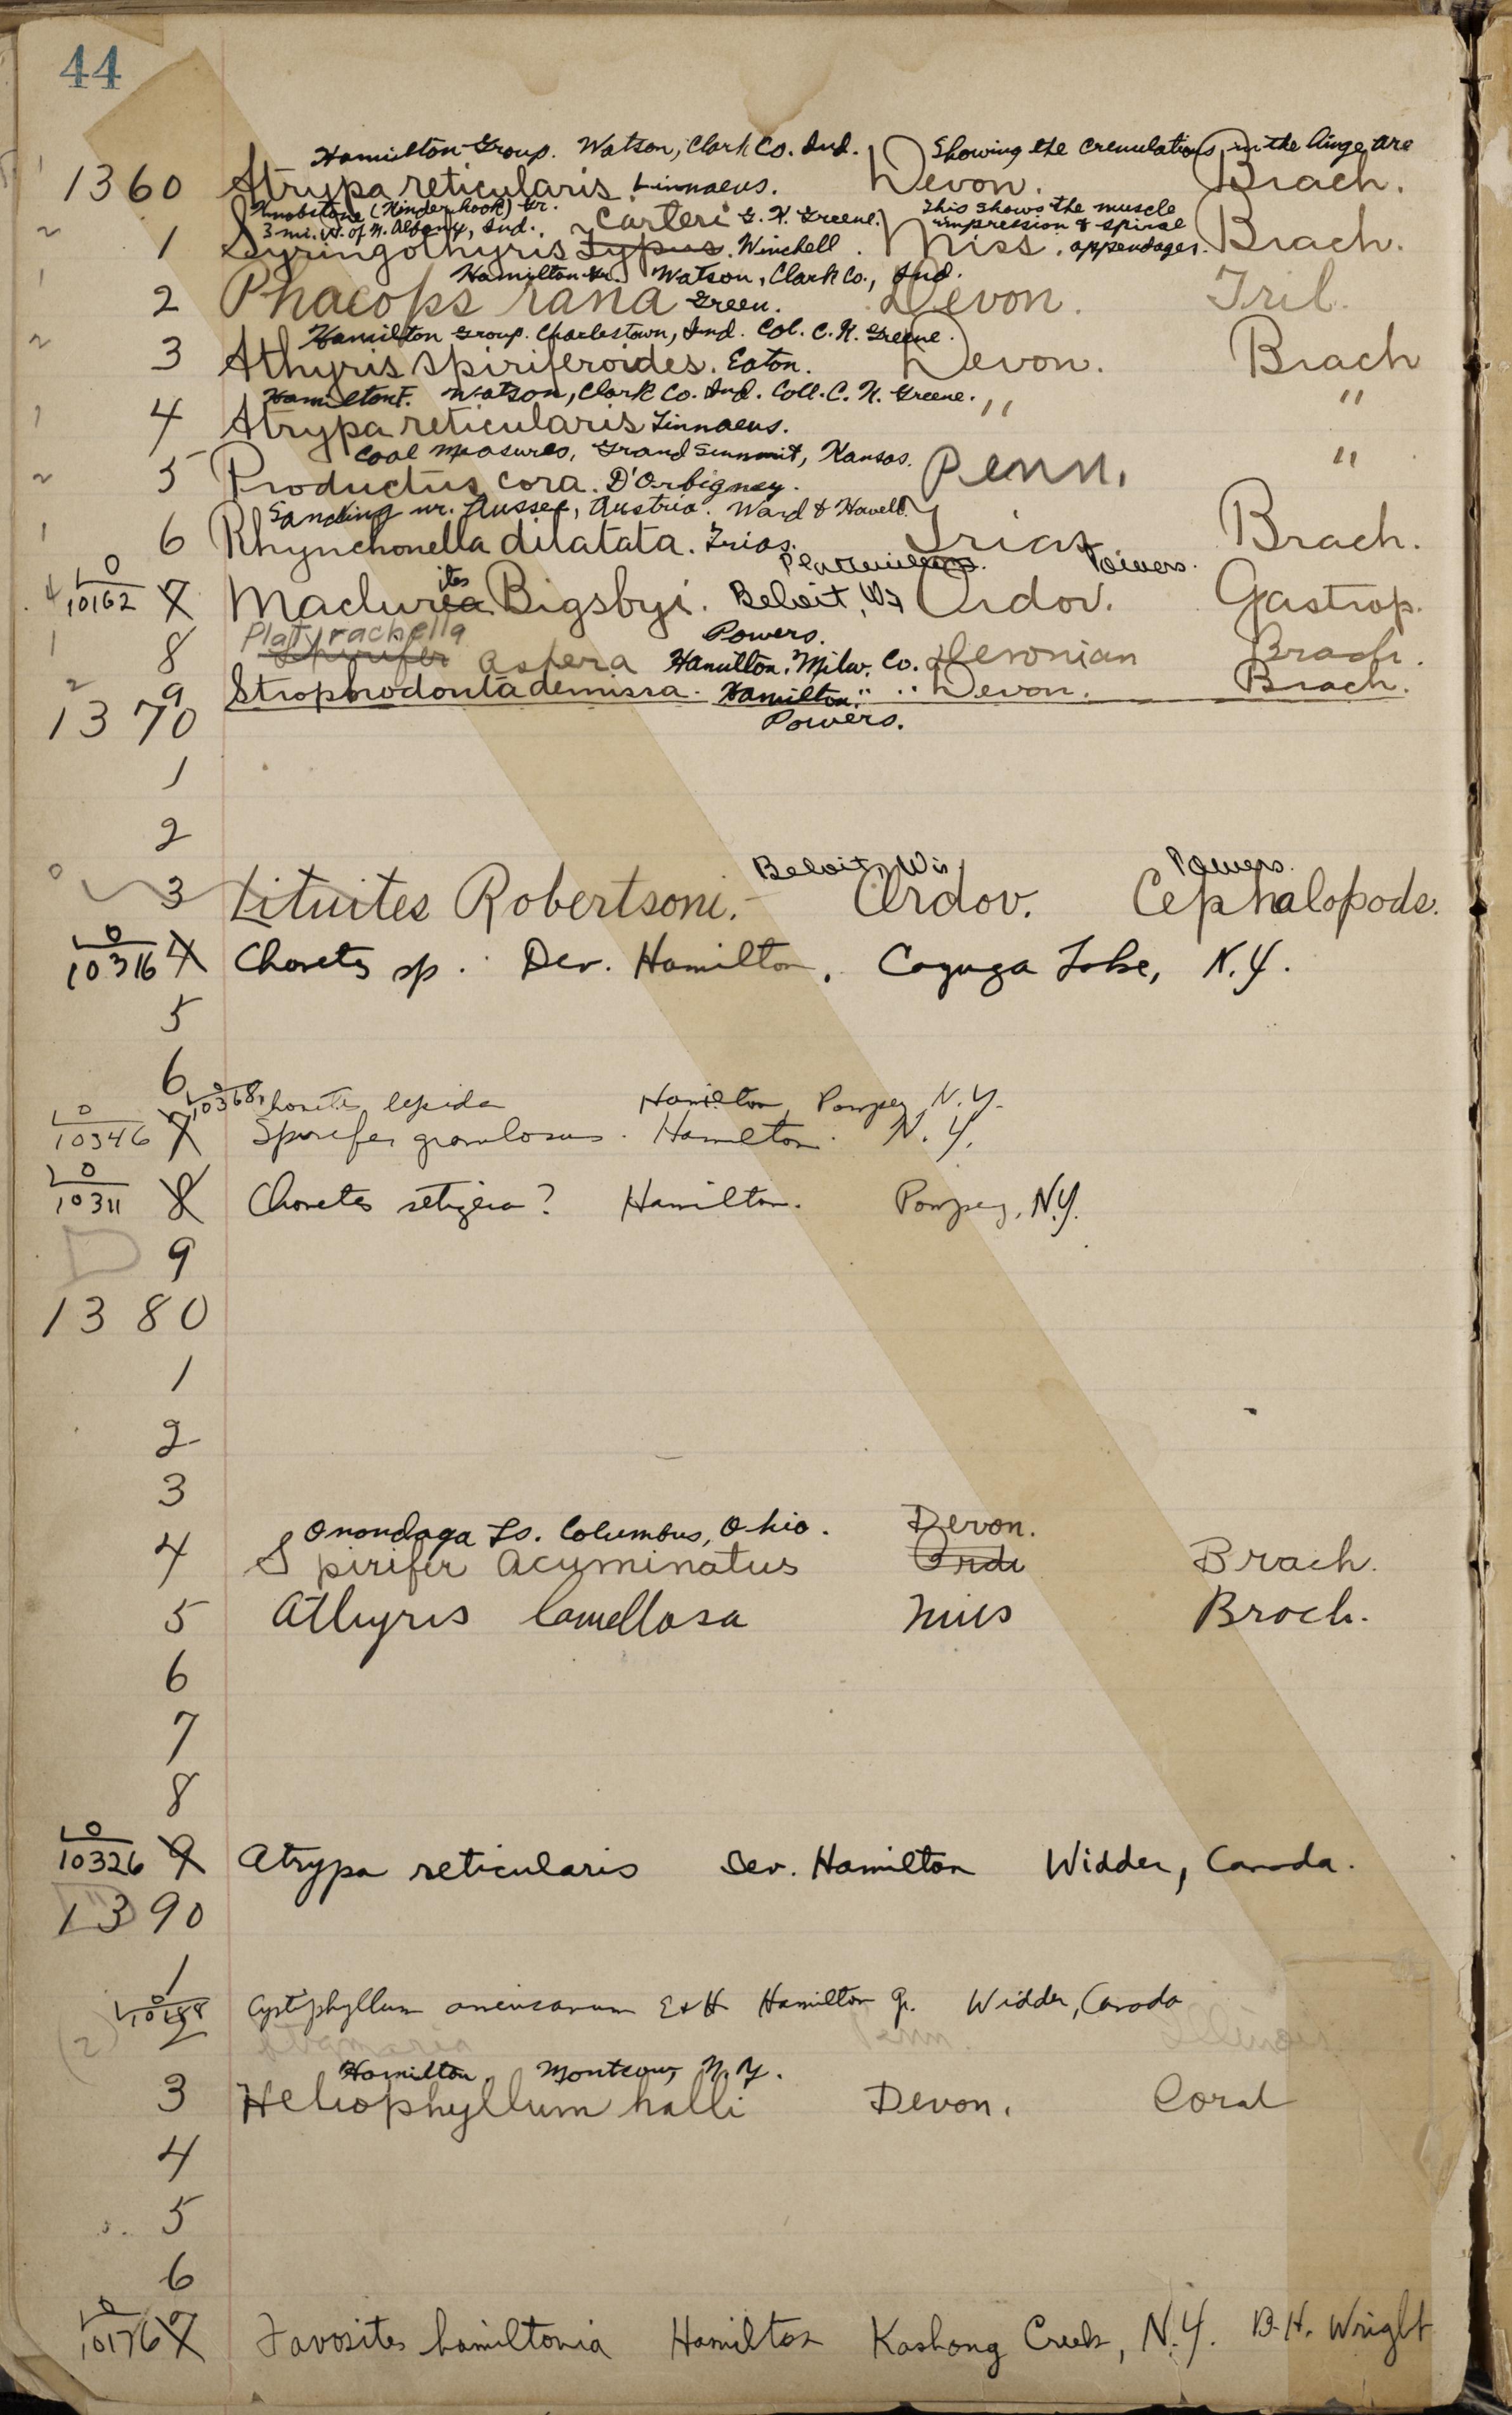 44
Hamilton Group. Watson, Clark Co. Ind. Showing the crenulations in the hinge are
1360 Atrypa reticularis. Linnaeus. Devon. Brach.
Knobstone (Kinderhook) Gr. This shows the muscle
3 mi. W. of N. Albany, Ind. Carteri G. K. Greene. impression & spiral
1 Syringothyris Typus. Winchell. Miss. appendages. Brach.
Hamilton Gr. Watson, Clark Co., Ind.
2 Phacops rana Green. Devon. Tril.
Hamilton Group. Charlestown, Ind. Col. C. K. Greene.
3 Athyris spiriferoides. Eaton. Devon. Brach
Hamilton F. Watson, Clark Co. Ind. Coll. C. K. Greene.
4 Atrypa reticularis Linnaeus. " "
Coal Measures, Grand Summit, Kansas.
5 Productus cora. D'Orbigney. Penn. "
Sandling nr. Aussee, Austria. Ward & Howell.
6 Rhynchonella dilatata. Trias. Trias Brach.
Powers.
ites
10162 7 Maclurea Bigsbyi. Beloit, Wis Ordov. Gastrop.
Platyrachella Powers.
8 Spirifer aspera Hamilton. Milw. Co. Devonian Brach.
9 Strophodonta demissa. Hamilton. " " Devon. Brach.
1370 Powers.
1
2
Beloit, Wis Powers.
3 Lituites Robertsoni. Ordov. Cephalopods.
10316 4 Chonetes sp. Dev. Hamilton, Cayuga Lake, N.Y.
5
6
10368 Chonetes lepida Hamilton, Pompey N.Y.
10346 7 Spirifer granulosus. Hamilton. N.Y.
10311 8 Chonetes setigera? Hamilton. Pompey, N.Y.
9
1380
1
2
3
Onondaga Ls. Columbus, Ohio. Devon.
4 Spirifer acuminatus Ordi Brach.
5 Athyris lamellosa Miss Brach.
6
7
8
10326 9 Atrypa reticularis Dev. Hamilton Widder, Canada.
1390
1
2 Cystiphyllum americanum E & H Hamilton Gr. Widder, Canada
(2) Penn. Illinois
Hamilton, N.Y.
3 Heliophyllum halli Devon. Coral
4
5
6
10176 7 Favosites hamiltonia Hamilton Kashong Creek, N.Y. B.H. Wright